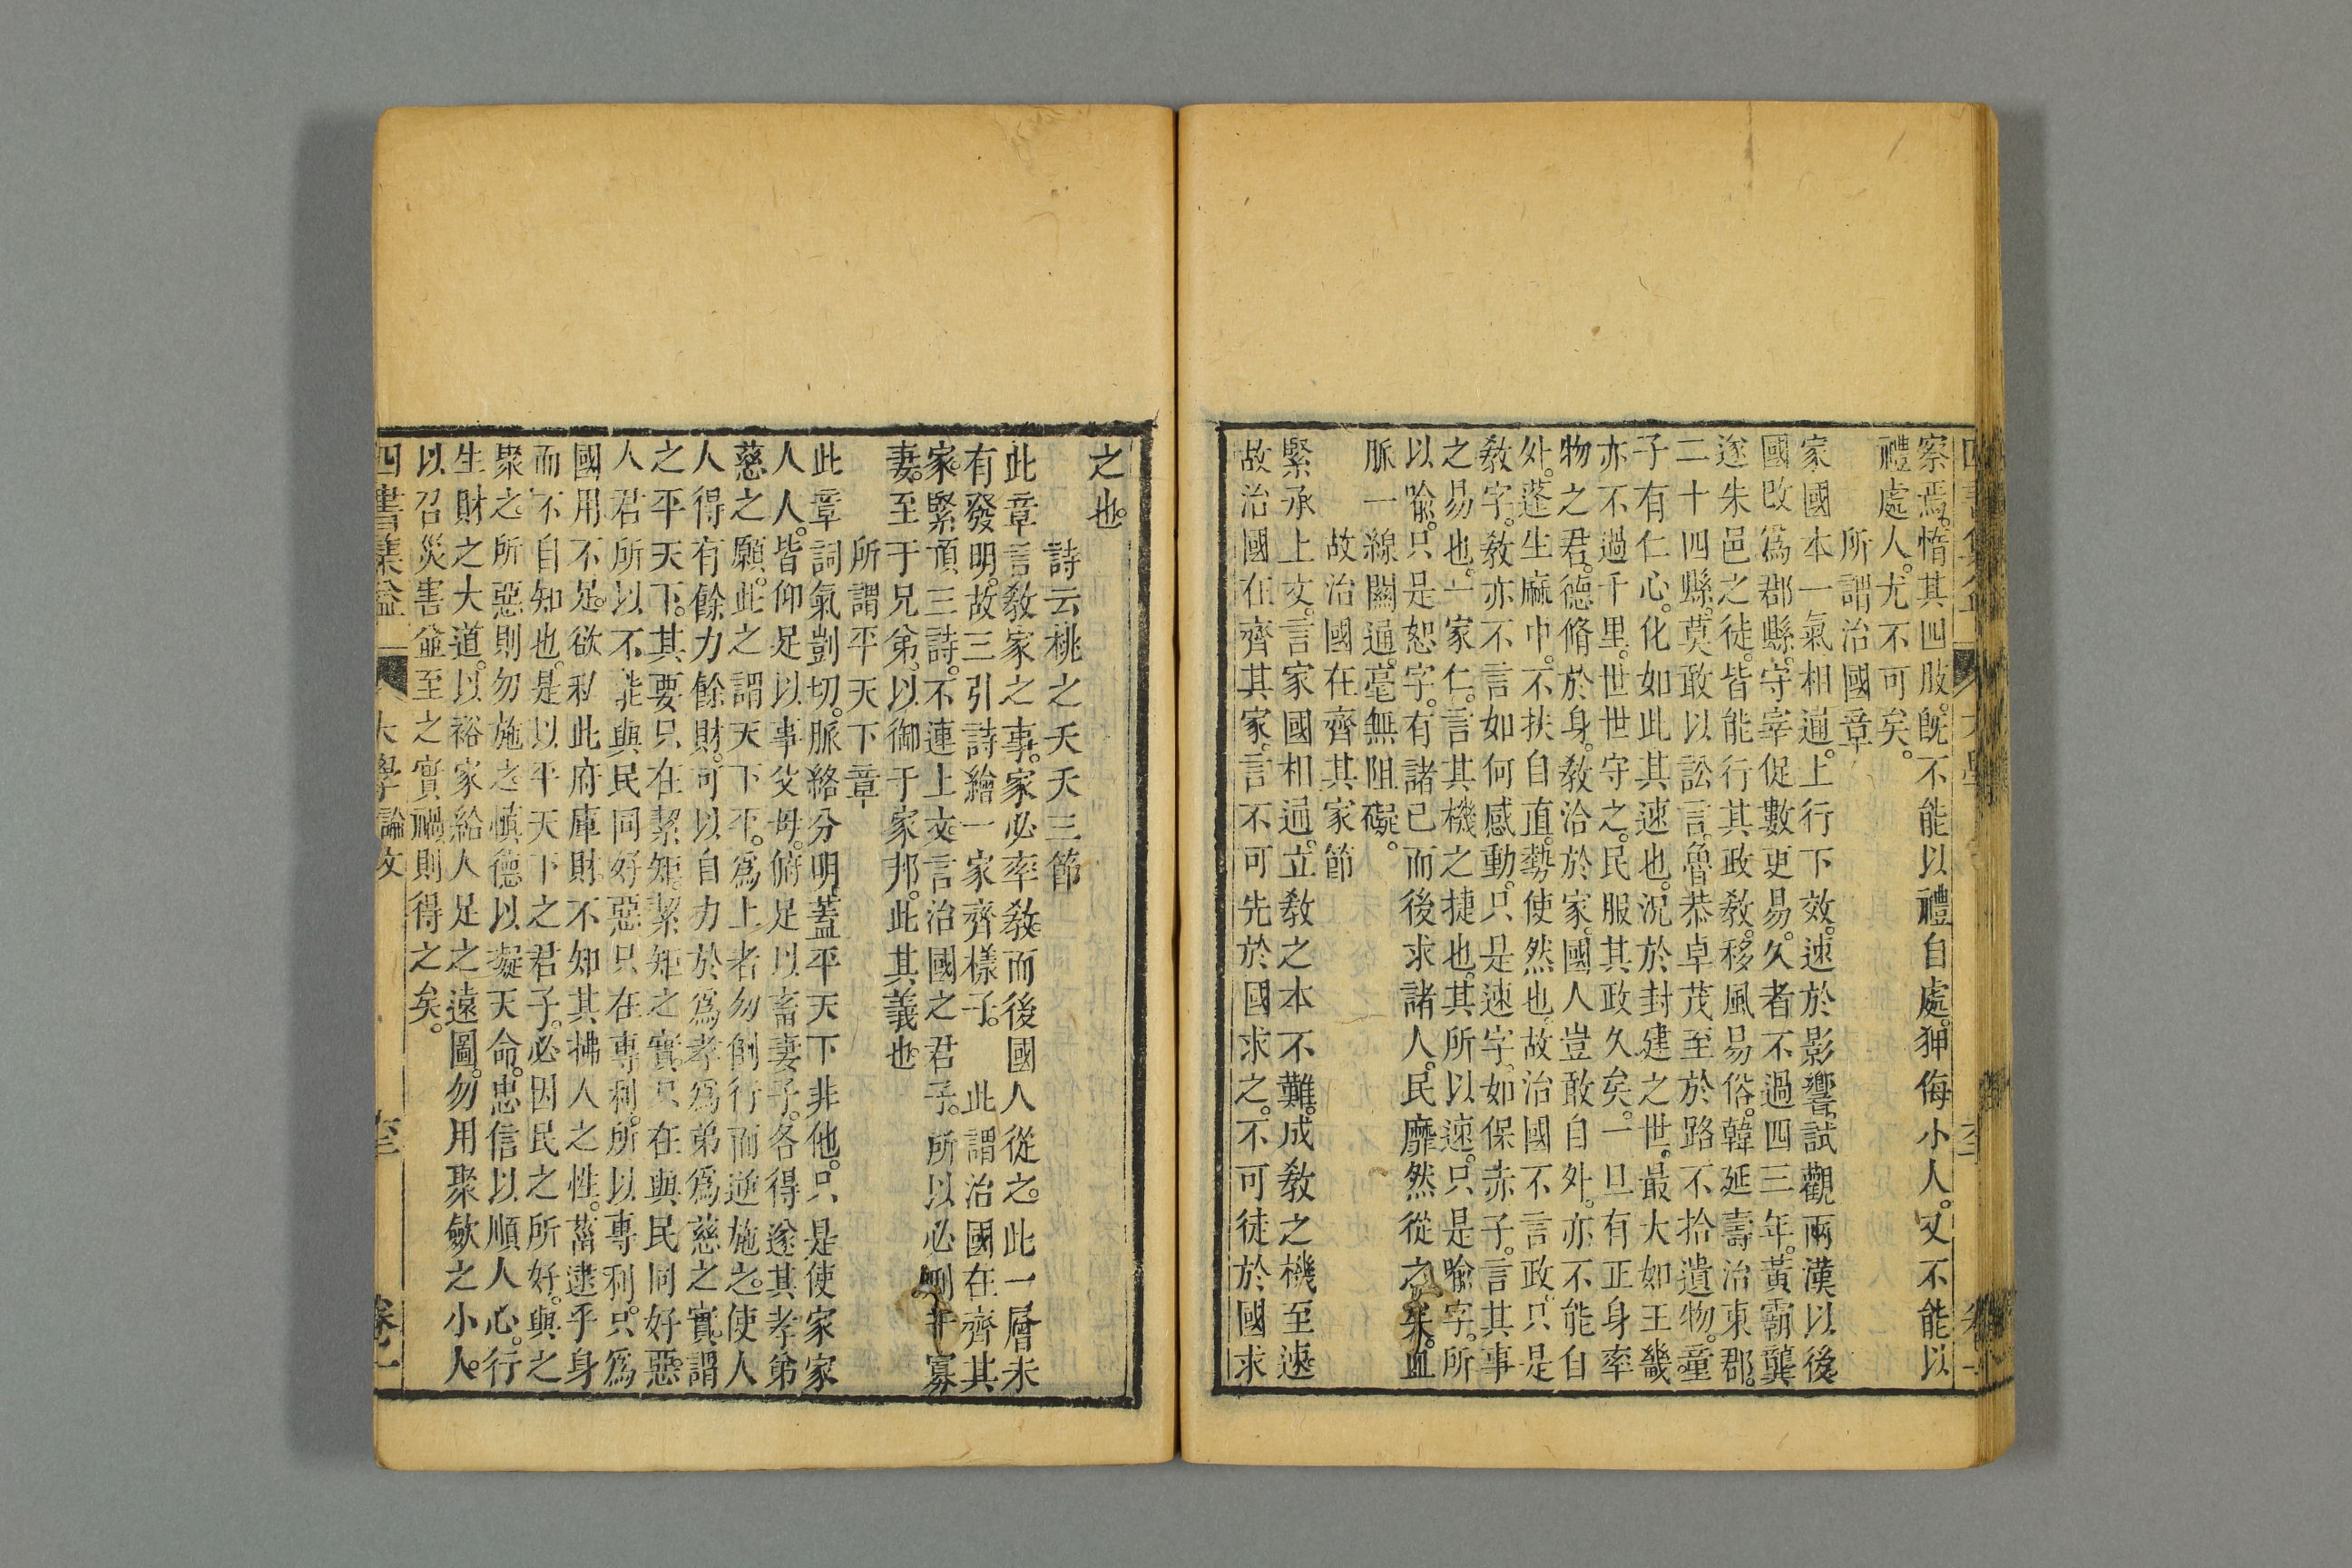 察焉。惰其四肢。旣不能以禮自處。狎侮小人。又不能以
禮處人。尤不可矣。
所謂治國章
家國本一氣相通。上行下效。速於影響。試觀兩漢以後。
國改爲郡縣。守宰促數更易。久者不過四三年。黃霸龔
遂朱邑之徒。皆能行其政敎。移風易俗。韓延壽治東郡。
二十四縣。莫敢以訟言。魯恭卓茂至於路不拾遺物。童
子有仁心。化如此其速也。況於封建之世。最大如王畿
亦不過千里。世世守之。民服其政久矣。一旦有正身率
物之君。德脩於身。敎洽於家。國人豈敢自外。亦不能自
外。蓬生麻中。不扶自直。勢使然也。故治國不言政。只是
敎字。敎亦不言如何感動。只是速字。如保赤子。言其事
之易也。一家仁。言其機之捷也。其所以速。只是喩字。所
以喩。只是恕字。有諸己而後求諸人。民靡然從之矣。血
脈一線關通。毫無阻礙。
故治國在齊其家節
緊承上文。言家國相通。立敎之本不難。成敎之機至速。
故治國在齊其家。言不可先於國求之。不可徒於國求
之也。
詩云桃之夭夭三節
此章言敎家之事。家必率敎。而後國人從之。此一層未
有發明。故三引詩繪一家齊樣子。 此謂治國在齊其
家。緊頂三詩。不連上文。言治國之君子。所以必刑于寡
妻。至于兄弟。以御于家邦。此其義也。
所謂平天下章
此章詞氣剴切。脈絡分明。蓋平天下非他。只是使家家
人人。皆仰足以事父母。俯足以畜妻子。各得遂其孝弟
慈之願。此之謂天下平。爲上者勿倒行而逆施之。使人
人得有餘力餘財。可以自力於爲孝爲弟爲慈之實。謂
之平天下。其要只在絜矩。絜矩之實。只在與民同好惡。
人君所以不能與民同好惡。只在專利。所以專利。只爲
國用不足。欲私此府庫財。不知其拂人之性。菑逮乎身
而不自知也。是以平天下之君子。必因民之所好。與之
聚之。所惡則勿施之。愼德以凝天命。忠信以順人心。行
生財之大道。以裕家給人足之遠圖。勿用聚斂之小人。
以召災害並至之實禍。則得之矣。
四書集益 大學論文 卷一